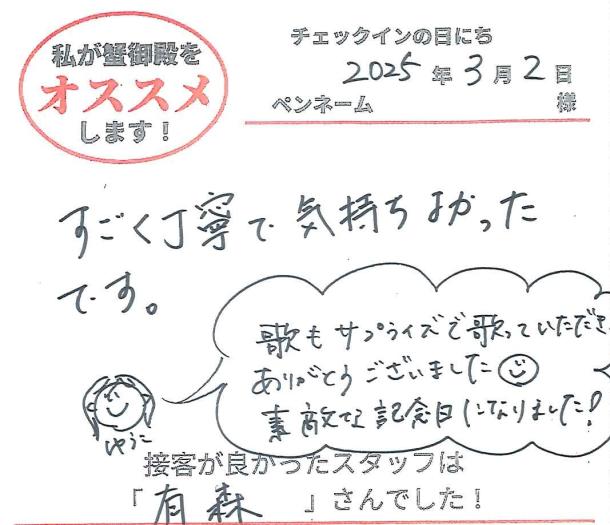 私が蟹御殿を
オススメ
します！
チェックインの日にち
2025年3月2日
ペンネーム 様
すごく丁寧で気持ちよかった
です。
歌もサプライズで歌っていただき
ありがとうございました
素敵な記念日になりました!
ゆうこ
接客が良かったスタッフは
「有森」さんでした！